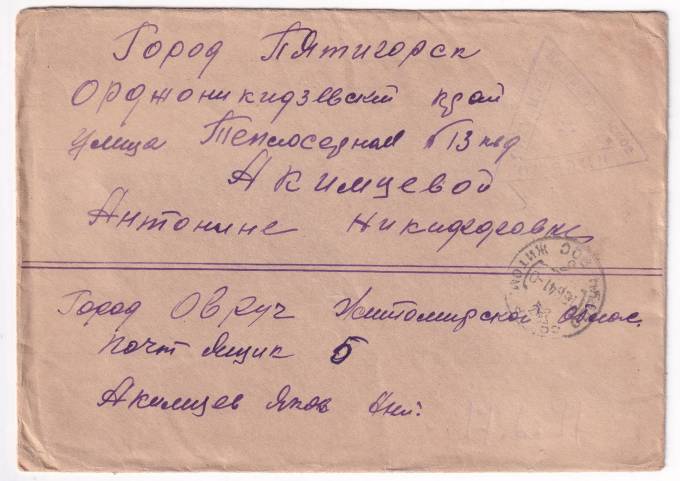 Город Пятигорск
Орджоникидзевский край
улица Теплосерная №13 кв
Акимцевой
Антонине Никифоровне
Город Овруч Житомирской облас.
почт ящик 5
Акимцев Яков